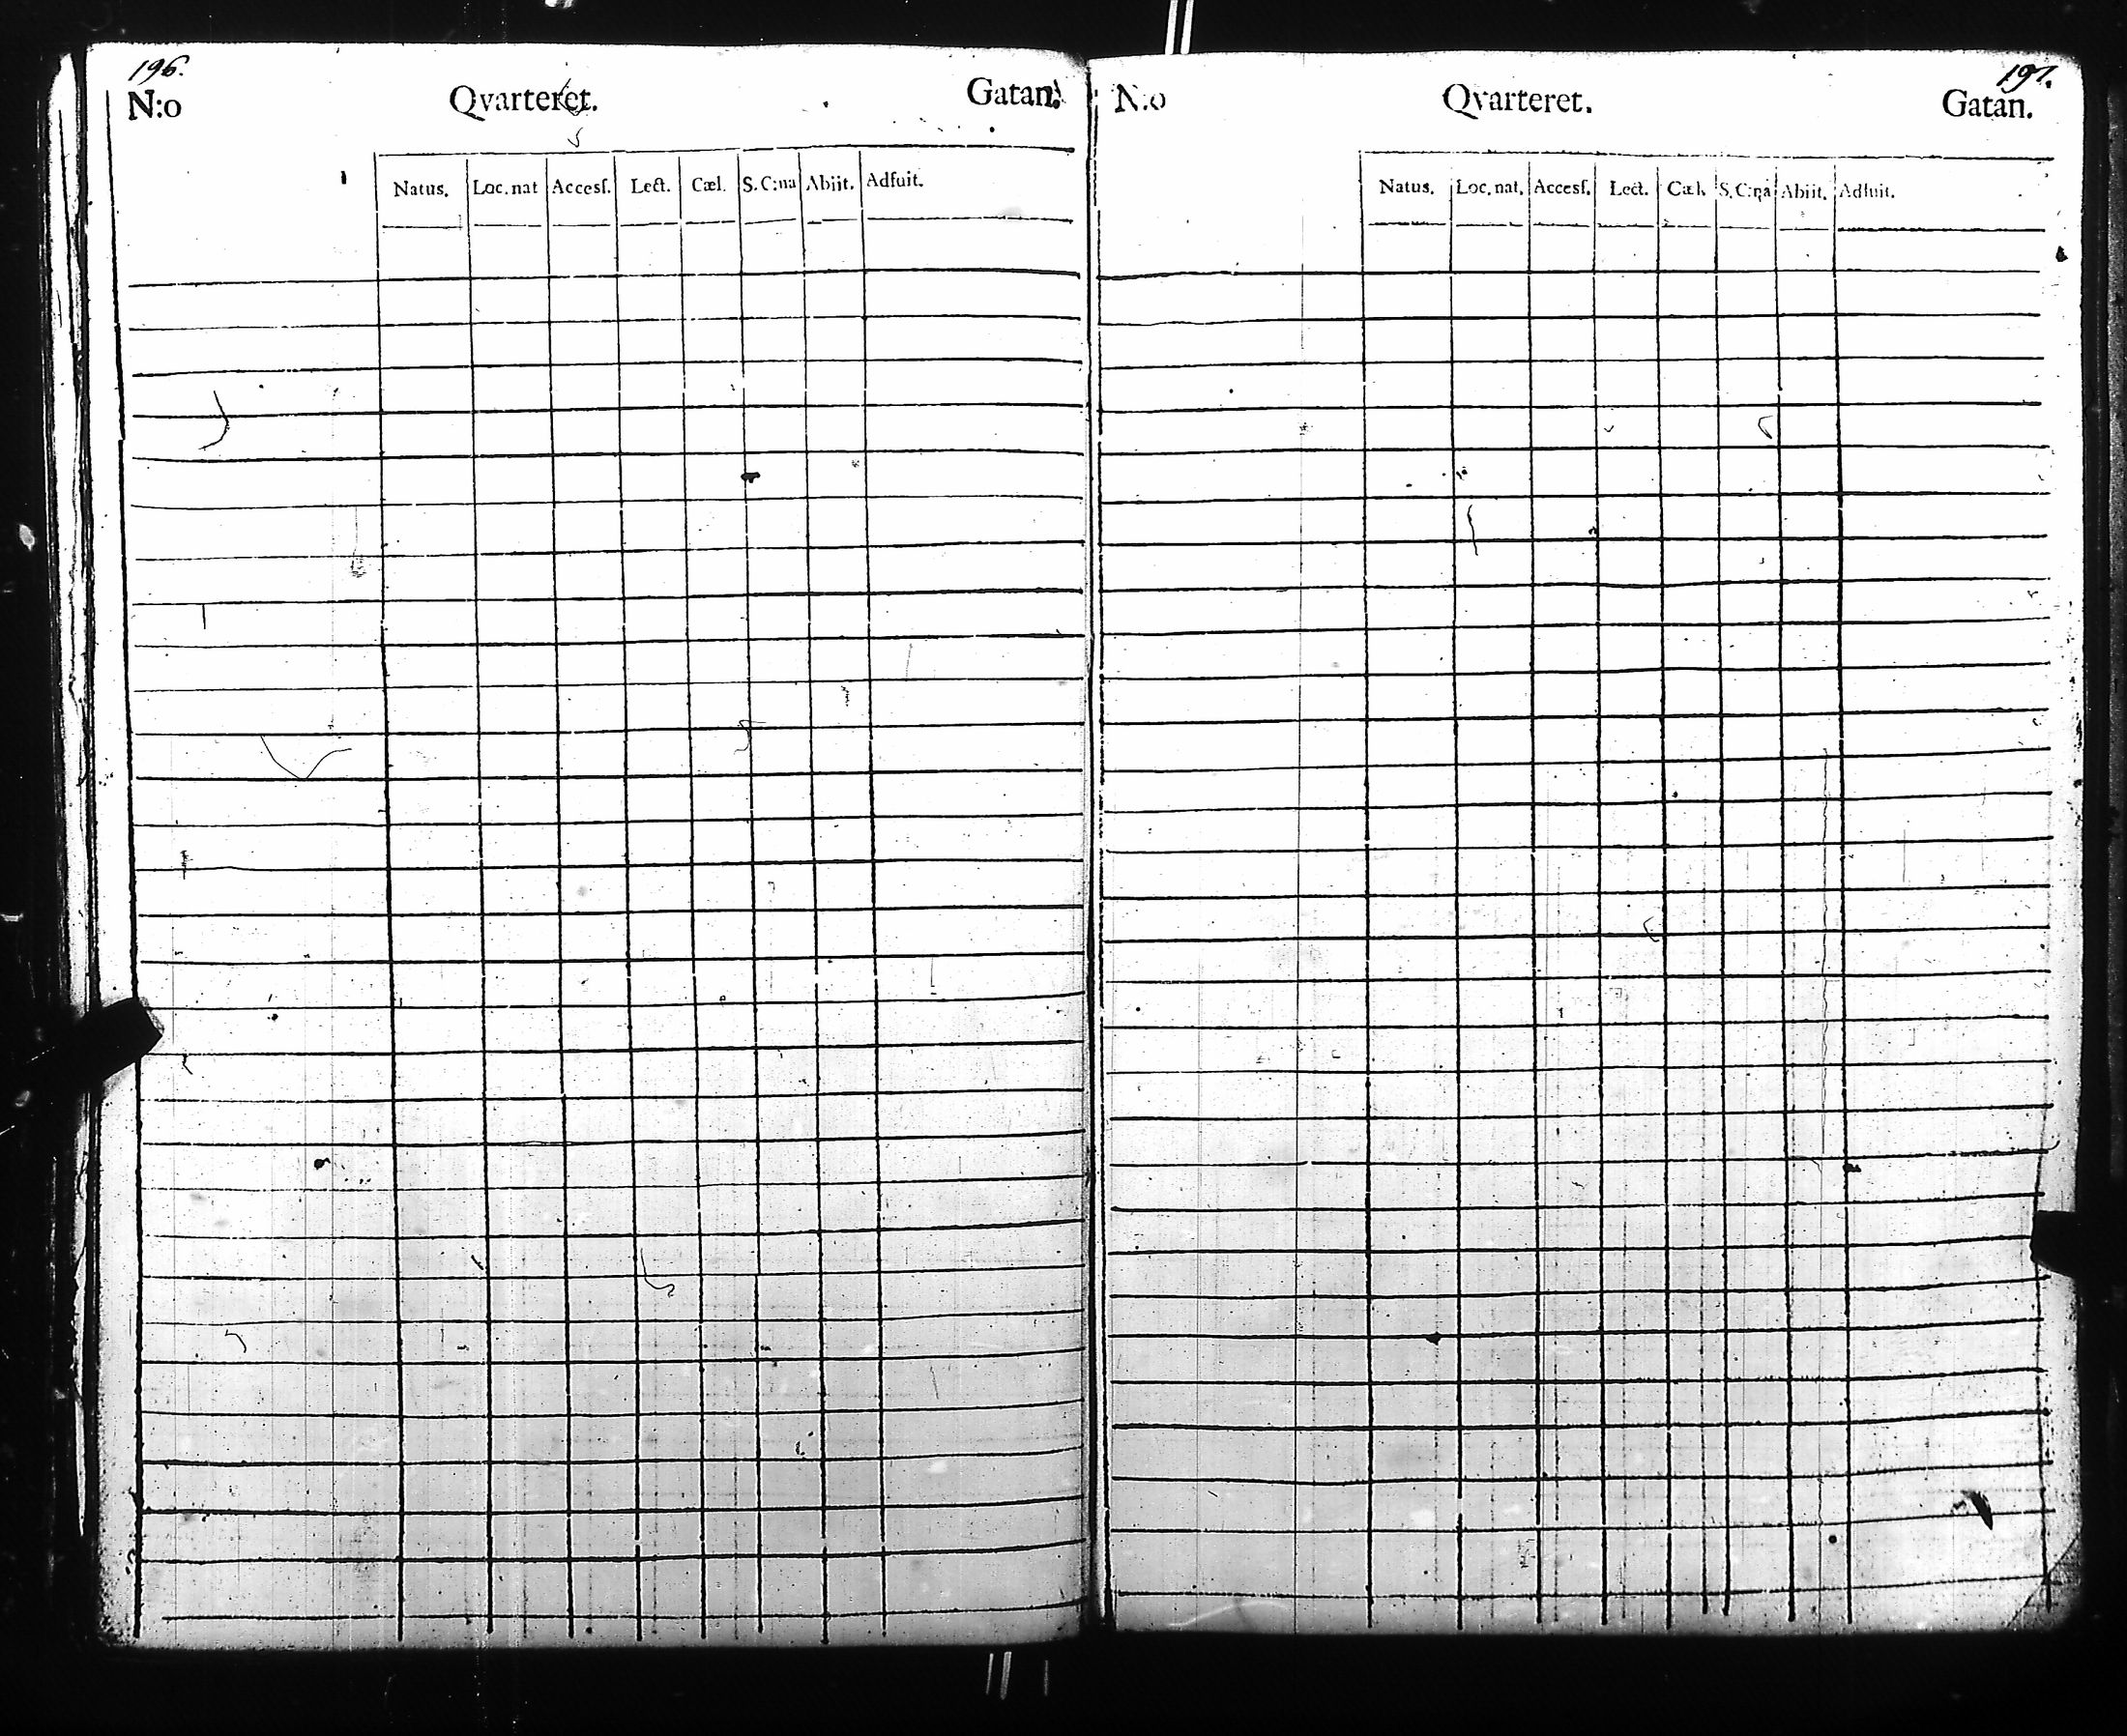 196.
N:o Qvarteret. Gatan.
Natus. Loc. nat Accesſ. Lect. Cæl. S. C:na Abiit. Adfuit.
197.
N:o Qvarteret. Gatan.
Natus. Loc. nat. Accesſ. Lect. Cæl. S. C:na Abiit. Adfuit.